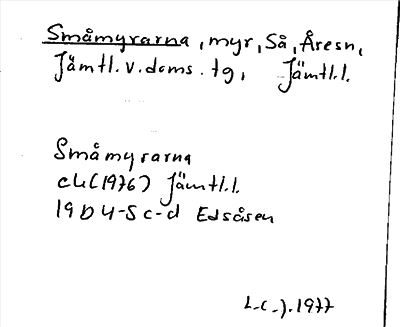 Småmyrarna, myr, Så, Åresn,
Jämtl.v.doms.tg, Jämtl.l.
Småmyrarna
ek(1976) Jämtl.l.
19D 4-5 c-d Edsåsen
L-c-J.1977